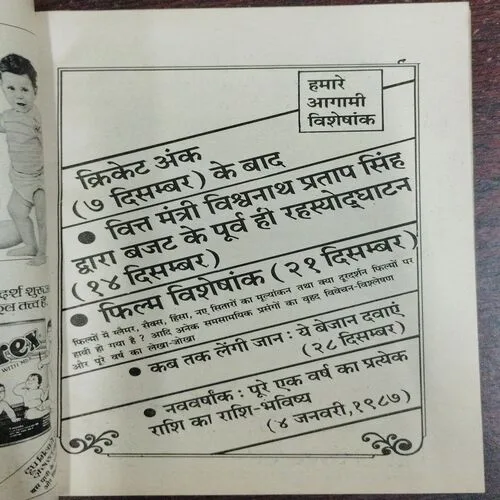 हमारे
आगामी
विशेषांक
क्रिकेट अंक
(७ दिसम्बर) के बाद
• वित्त मंत्री विश्वनाथ प्रताप सिंह
द्वारा बजट के पूर्व ही रहस्योद्घाटन
(१४ दिसम्बर)
• फिल्म विशेषांक (२१ दिसम्बर)
फिल्मों में ग्लैमर, सैक्स, हिंसा, नए सितारों का मूल्यांकन तथा क्या दूरदर्शन फिल्मों पर
हावी हो गया है? आदि अनेक समसामयिक प्रसंगों का वृहद विवेचन-विश्लेषण
और पूरे वर्ष का लेखा-जोखा
• कब तक लेंगी जान : ये बेजान दवाएं
(२८ दिसम्बर)
• नववर्षांक : पूरे एक वर्ष का प्रत्येक
राशि का राशि-भविष्य
(४ जनवरी, १९८७)
rex
WITH